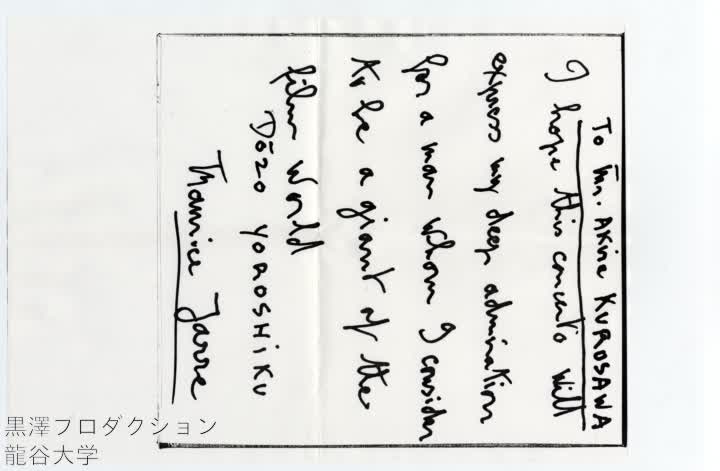 To Mr. AKiRA KUROSAWA
I hope this concerto will
express my deep admiration
for a man whom I consider
to be a giant of the
film world
DŌZO YOROSHiKU
Maurice Jarre
黒澤フロダクション
龍谷大学